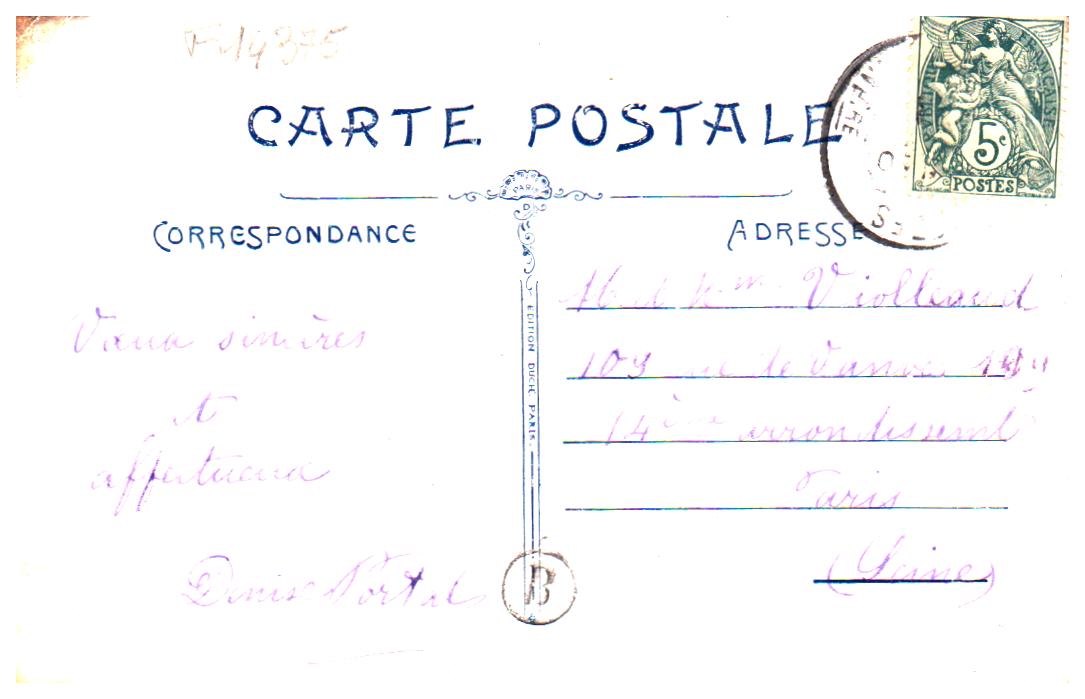 F 14375
CARTE POSTALE
PARIS
D
CORRESPONDANCE
ADRESSE
5c
POSTES
EDITION DUCHE PARIS.
Vœux sincères
et
affectueux
Denise Portal
B
M et Mme Violleaud
103 rue de Vanves
14ème arrondissemt
Paris
(Seine)